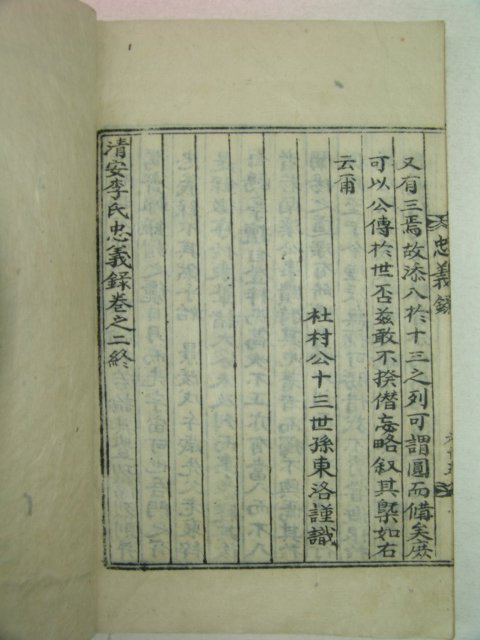 忠義錄
又有三焉故添入於十三之列可謂圓而備矣庶
可以公傳於世否玆敢不揆僭妄略叙其槩如右
云爾
杜村公十三世孫東洛謹識
清安李氏忠義錄卷之二終